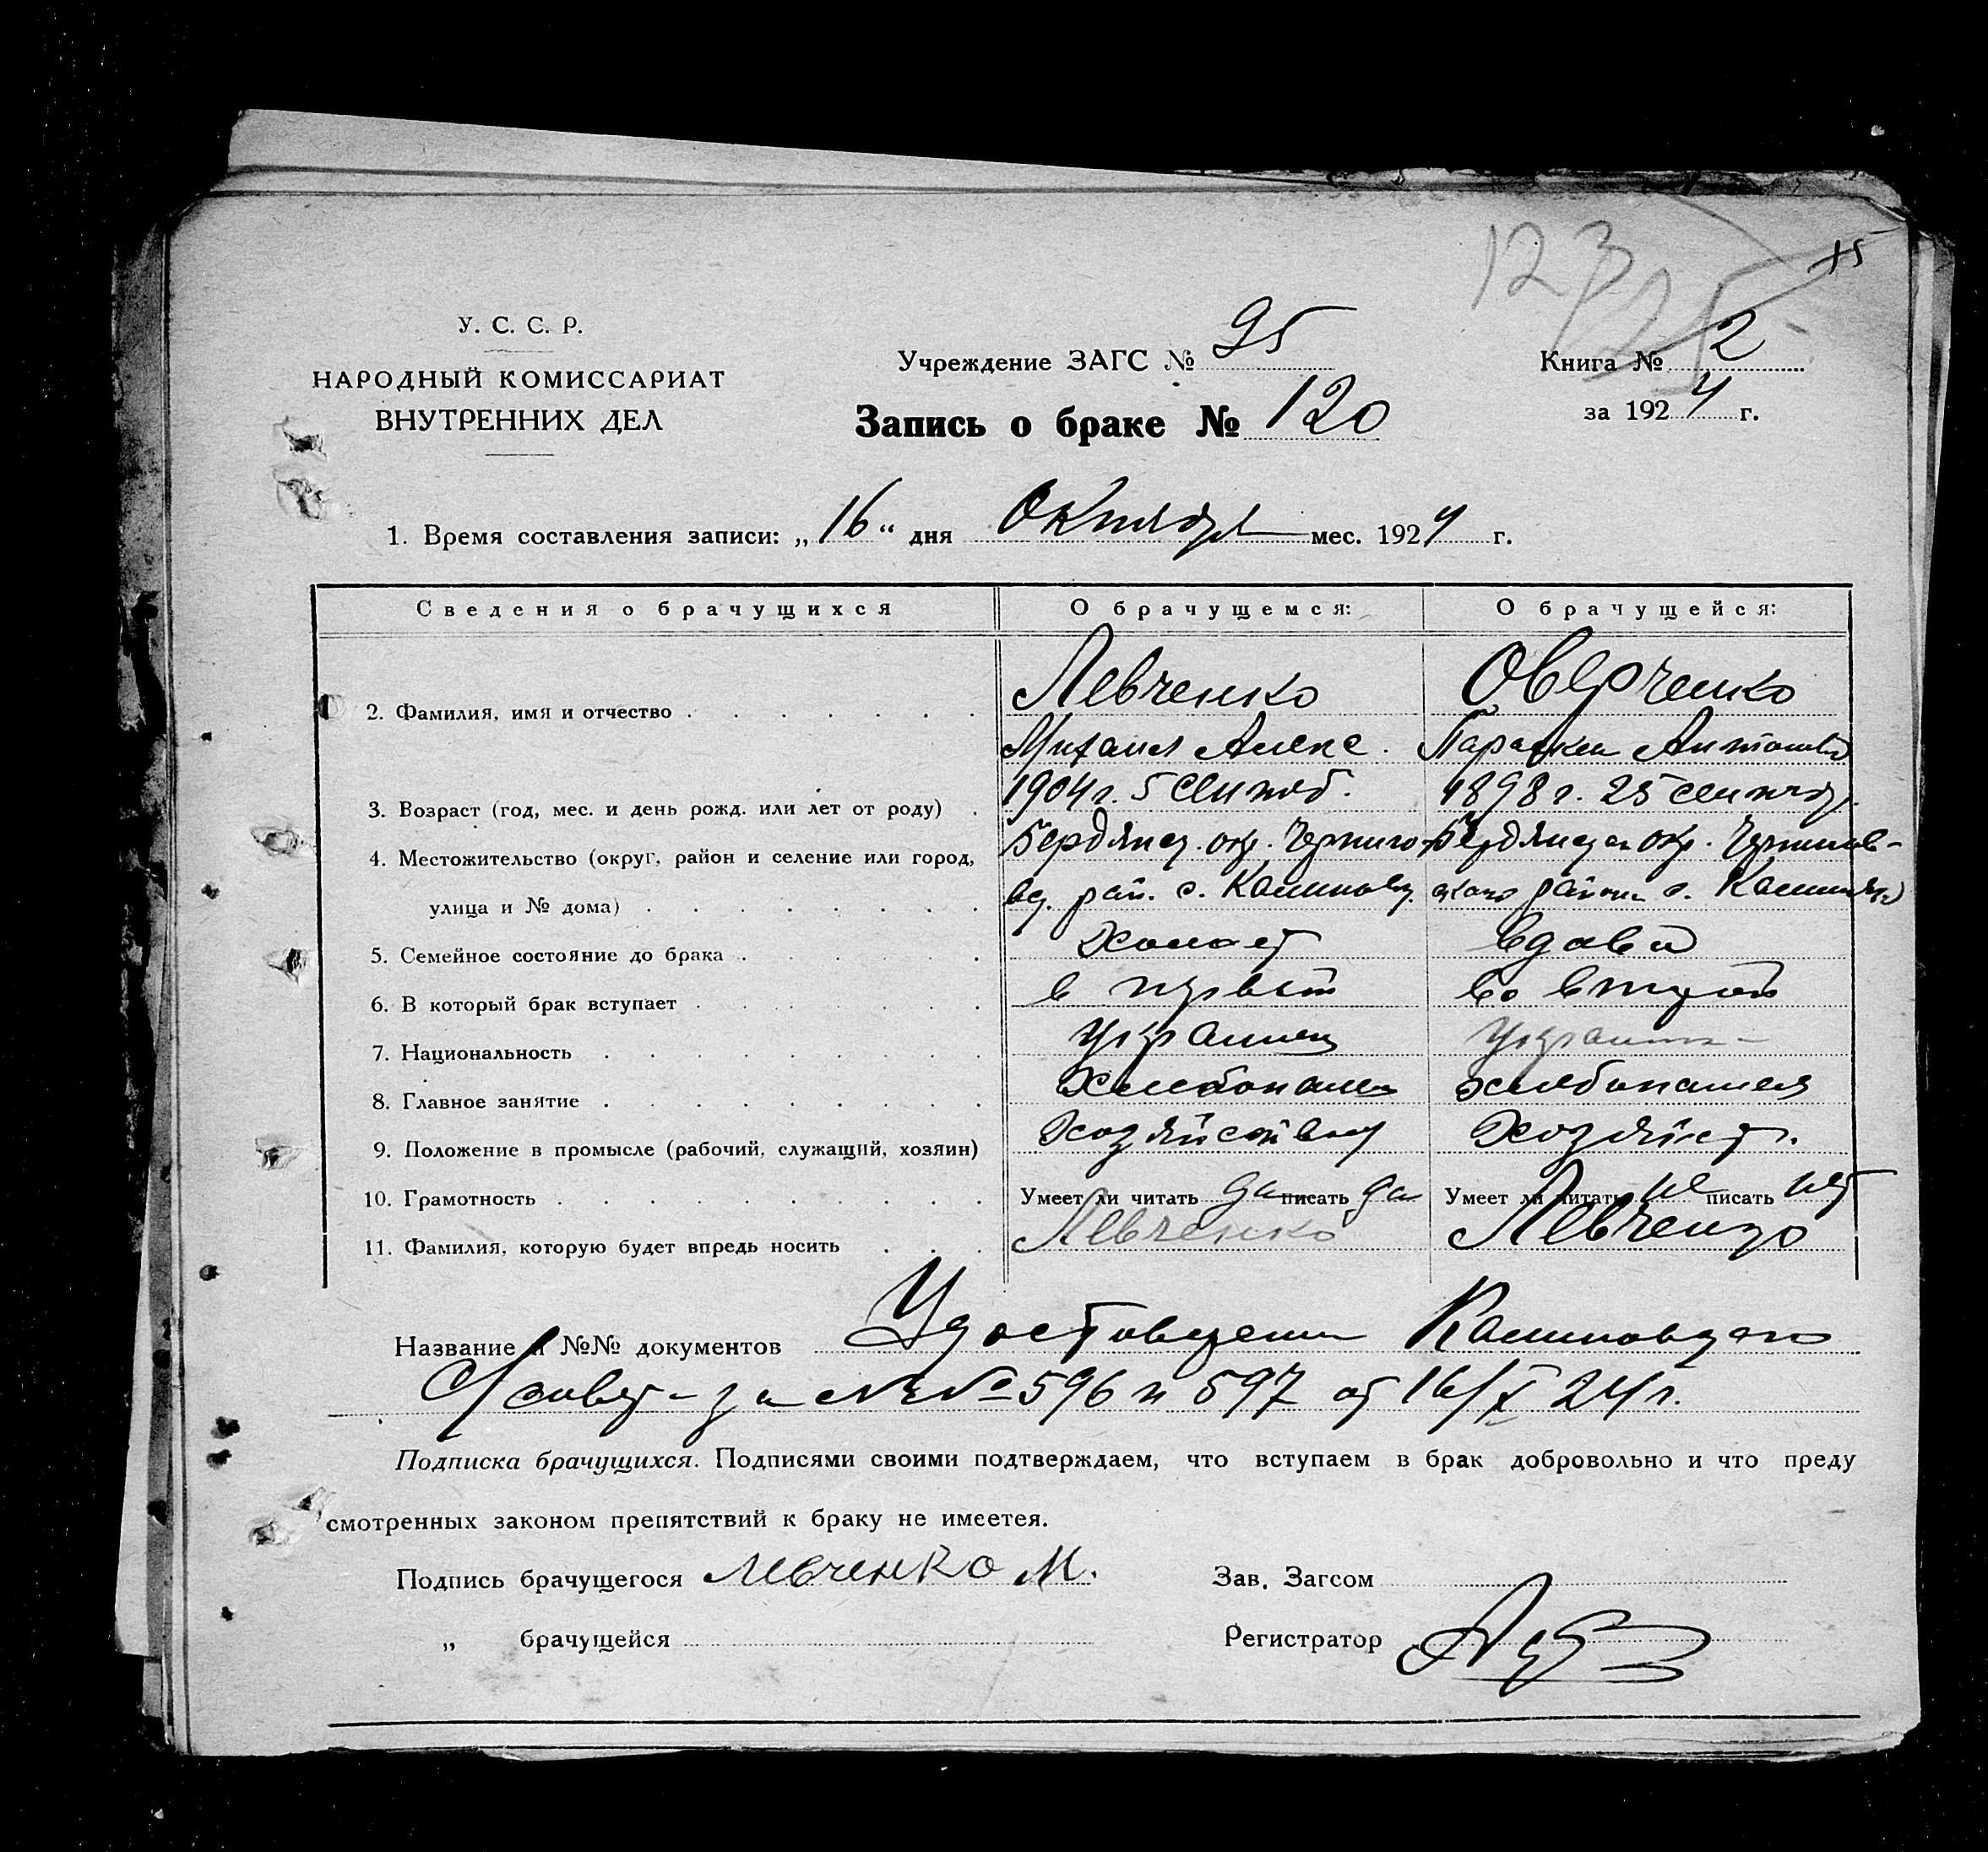 123
15
У. С. С. Р.
НАРОДНЫЙ КОМИССАРИАТ
ВНУТРЕННИХ ДЕЛ
Учреждение ЗАГС № 95
Книга № 2
Запись о браке № 120
за 1924 г.
1. Время составления записи: „16“ дня Октября мес. 1924 г.
Сведения о брачущихся О брачущемся: О брачущейся:
2. Фамилия, имя и отчество Левченко Оверченко
Михаил Алекс. Параскев Антонов
3. Возраст (год, мес. и день рожд. или лет от роду) 1904 г. 5 Сентяб. 1898 г. 25 сентяб.
4. Местожительство (округ, район и селение или город, Бердянск. окр. Черниго- Бердянск окр. Чернигов-
улица и № дома) вск. рай. с. Калиновк. ского района с. Калиновк
5. Семейное состояние до брака Холост вдова
6. В который брак вступает в первый во второй
7. Национальность Украинец Украинка
8. Главное занятие Хлебопашец хлебопашец
9. Положение в промысле (рабочий, служащий, хозяин) Хозяйств.
10. Грамотность Умеет ли читать да писать да Умеет ли читать не писать нет
11. Фамилия, которую будет впредь носить Левченко Левченко
Название и №№ документов Удостоверения Калиновского
С/совета за №№ 596 и 597 от 16/X 24 г.
Подписка брачущихся. Подписями своими подтверждаем, что вступаем в брак добровольно и что преду
смотренных законом препятствий к браку не имеетея.
Подпись брачущегося Левченко М. Зав. Загсом
„ брачущейся Регистратор